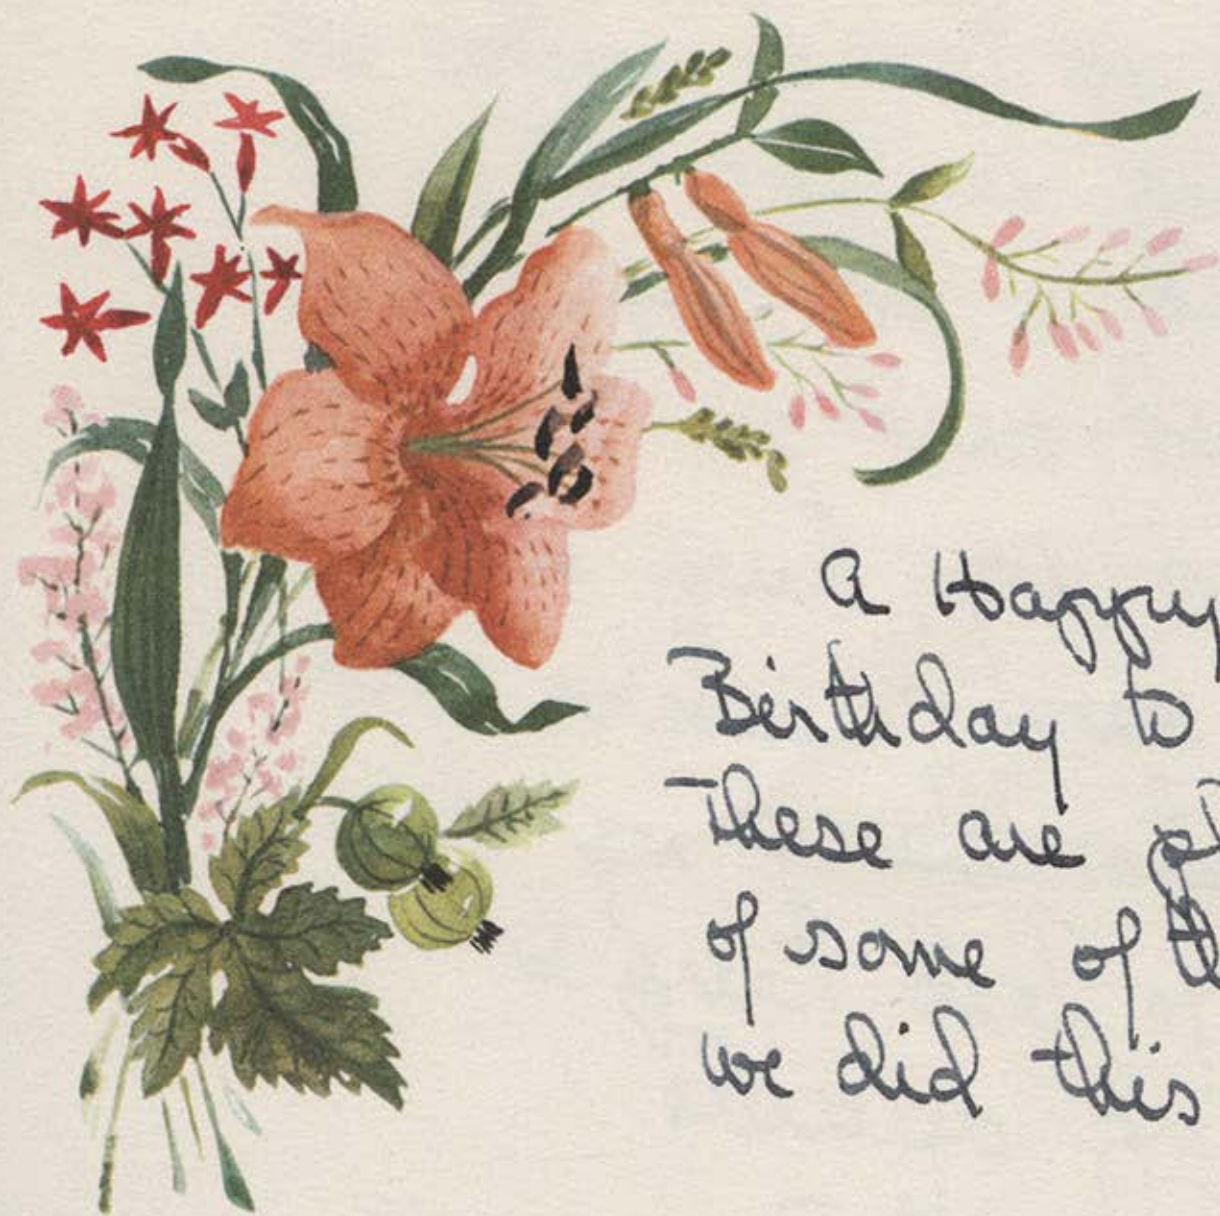 A Happy
Birthday to
These are
of some of
we did this